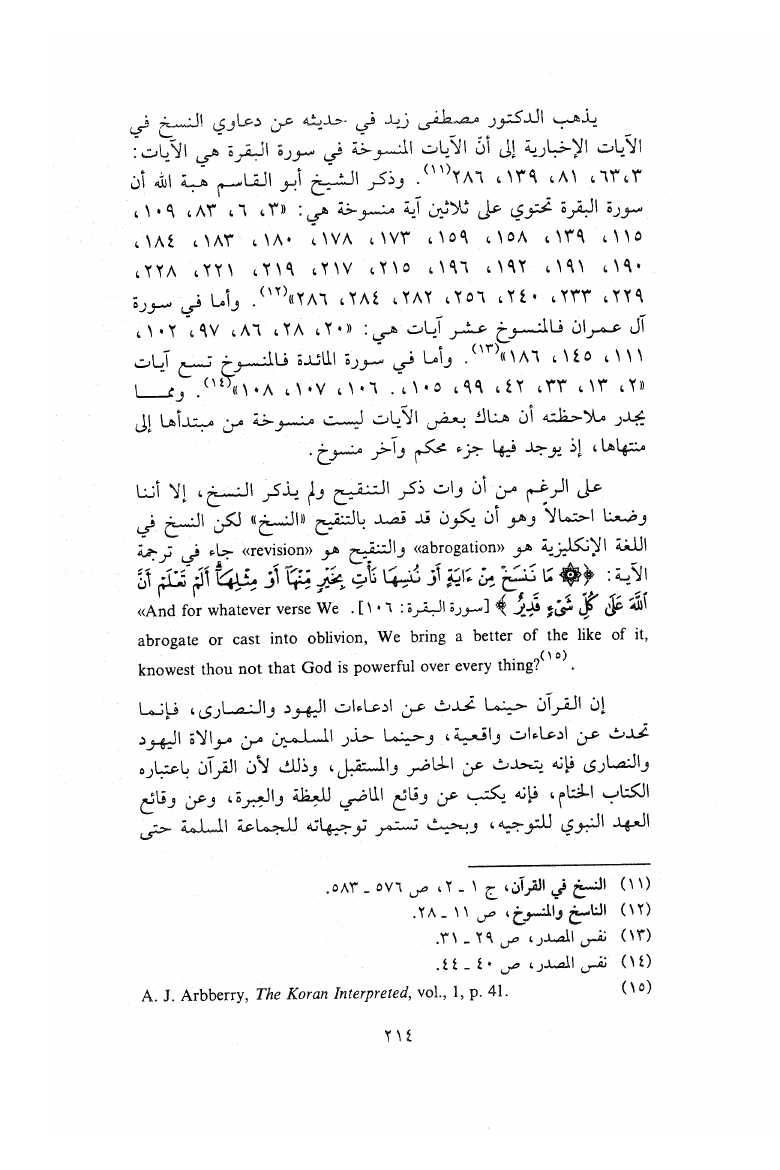 يذهب الدكتور مصطفى زيد في حديثه عن دعاوي النسخ في
الآيات الإخبارية إلى أنّ الآيات المنسوخة في سورة البقرة هي الآيات:
٣،٦٣، ٨١، ١٣٩، ٢٨٦(١١). وذكر الشيخ أبو القاسم هبة الله أن
سورة البقرة تحتوي على ثلاثين آية منسوخة هي: «٣، ٦، ٨٣، ١٠٩،
١١٥، ١٣٩، ١٥٨، ١٥٩، ١٧٣، ١٧٨، ١٨٠، ١٨٣، ١٨٤،
١٩٠، ١٩١، ١٩٢، ١٩٦، ٢١٥، ٢١٧، ٢١٩، ٢٢١، ٢٢٨،
٢٢٩، ٢٣٣، ٢٤٠، ٢٥٦، ٢٨٢، ٢٨٤، ٢٨٦»(١٢). وأما في سورة
آل عمران فالمنسوخ عشر آيات هي: «٢٠، ٢٨، ٨٦، ٩٧، ١٠٢،
١١١، ١٤٥، ١٨٦»(١٣). وأما في سورة المائدة فالمنسوخ تسع آيات
«٢، ١٣، ٣٣، ٤٢، ٩٩، ١٠٥،. ١٠٦، ١٠٧، ١٠٨»(١٤). ومما
يجدر ملاحظته أن هناك بعض الآيات ليست منسوخة من مبتدأها إلى
منتهاها، إذ يوجد فيها جزء محكم وآخر منسوخ.
على الرغم من أن وات ذكر التنقيح ولم يذكر النسخ، إلا أننا
وضعنا احتمالاً وهو أن يكون قد قصد بالتنقيح «النسخ» لكن النسخ في
اللغة الإنكليزية هو «abrogation» والتنقيح هو «revision» جاء في ترجمة
الآية: ﴿۞ مَا نَنسَخْ مِنْ ءَايَةٍ أَوْ نُنسِهَا نَأْتِ بِخَيْرٍ مِّنْهَآ أَوْ مِثْلِهَآ أَلَمْ تَعْلَمْ أَنَّ
اللَّهَ عَلَىٰ كُلِّ شَىْءٍ قَدِيرٌ﴾ [سورة البقرة: ١٠٦]. «And for whatever verse We
abrogate or cast into oblivion, We bring a better of the like of it,
knowest thou not that God is powerful over every thing?(١٥).
إن القرآن حينما تحدث عن ادعاءات اليهود والنصارى، فإنما
تحدث عن ادعاءات واقعية، وحينما حذر المسلمين من موالاة اليهود
والنصارى فإنه يتحدث عن الحاضر والمستقبل، وذلك لأن القرآن باعتباره
الكتاب الختام، فإنه يكتب عن وقائع الماضي للعِظة والعِبرة، وعن وقائع
العهد النبوي للتوجيه، وبحيث تستمر توجيهاته للجماعة المسلمة حتى
(١١) النسخ في القرآن، ج ١ ـ ٢، ص ٥٧٦ ـ ٥٨٣.
(١٢) الناسخ والمنسوخ، ص ١١ ـ ٢٨.
(١٣) نفس المصدر، ص ٢٩ ـ ٣١.
(١٤) نفس المصدر، ص ٤٠ ـ ٤٤.
(١٥) A. J. Arbberry, The Koran Interpreted, vol., 1, p. 41.
٢١٤